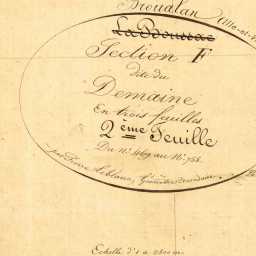 Broualan (Ille-et-
La Boussac
Section F
dite du
Domaine
En trois feuilles
2ème Feuille
Du N° 469 au N° 755.
par Pierre Leblanc, Géomètre Secondaire
Echelle d'1 a 2500 m.